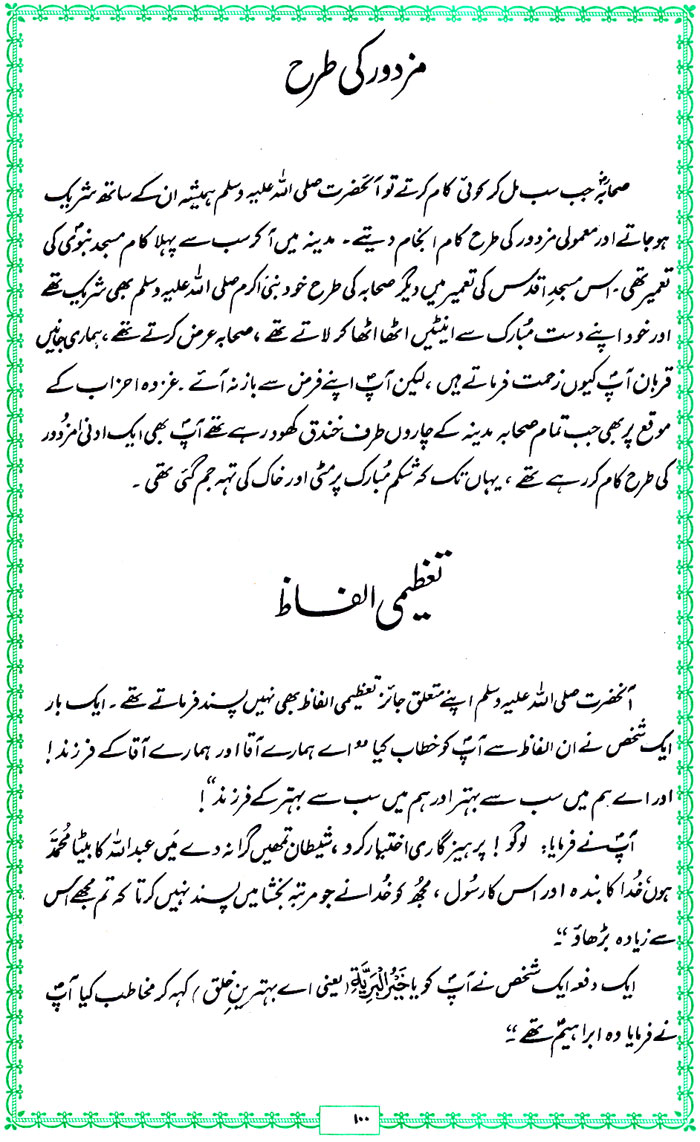 مزدور کی طرح
صحابہؓ جب سب مل کر کوئی کام کرتے تو آنحضرت صلی اللہ علیہ وسلم ہمیشہ ان کے ساتھ شریک
ہو جاتے اور معمولی مزدور کی طرح کام انجام دیتے۔ مدینہ میں آکر سب سے پہلا کام مسجد نبویؐ کی
تعمیر تھی۔ اس مسجدِ اقدس کی تعمیر میں دیگر صحابہ کی طرح خود نبیٔ اکرم صلی اللہ علیہ وسلم بھی شریک تھے
اور خود اپنے دست مُبارک سے انیٹیں اٹھا اٹھا کر لاتے تھے، صحابہ عرض کرتے تھے، ہماری جانیں
قربان آپؐ کیوں زحمت فرماتے ہیں، لیکن آپؐ اپنے فرض سے باز نہ آئے۔ غزدہ احزاب کے
موقع پر بھی جب تمام صحابہ مدینہ کے چاروں طرف خندق کھود رہے تھے آپؐ بھی ایک ادنیٰ مزُدور
کی طرح کام کر رہے تھے، یہاں تک کہ شکم مُبارک پر مٹی اور خاک کی تہہ جم گئی تھی۔
تعظیمی الفاظ
آنحضرت صلی اللہ علیہ وسلم اپنے متعلق جائز تعظیمی الفاظ بھی نہیں پسند فرماتے تھے۔ ایک بار
ایک شخص نے ان الفاظ سے آپؐ کو خطاب کیا ”اے ہمارے آقا اور ہمارے آقا کے فرزند!
اور اے ہم میں سب سے بہتر اور ہم میں سب سے بہتر کے فرزند“!
آپؐ نے فرمایا: لوگو! پرہیزگاری اختیار کرد، شیطان تمھیں گرا نہ دے مَیں عبداللہ کا بیٹا مُحمّد
ہوں خُدا کا بندہ اور اس کا رسُول، مجھ کو خُدا نے جو مرتبہ بخشا میں پسند نہیں کرتا کہ تم مجھے اُس
سے زیادہ بڑھاؤ“۔
ایک دفعہ ایک شخص نے آپؐ کو یا خَیْرُ الْبَرِیَّۃِ (یعنی اے بہترینِ خلق) کہہ کر مخاطب کیا آپؐ
نے فرمایا وہ ابراہیمؑ تھے“۔
۱۰۰